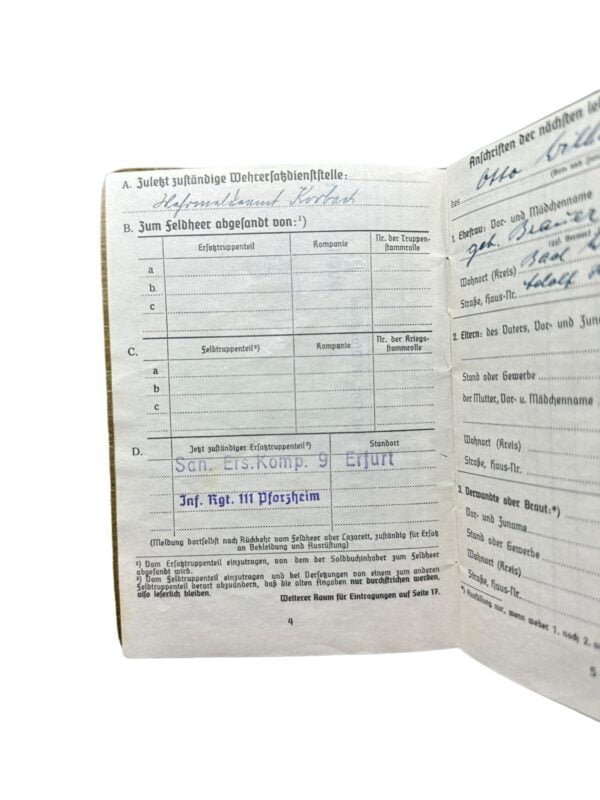 A. Zuletzt zuständige Wehrersatzdienststelle:
Wehrmeldeamt Korbach
B. Zum Feldheer abgesandt von:¹)
Ersatztruppenteil Kompanie Nr. der Truppen-
stammrolle
a
b.
c
C. Feldtruppenteil²) Kompanie Nr. der Kriegs-
stammrolle
a
b
c
D. Jetzt zuständiger Ersatztruppenteil²) Standort
San. Ers. Komp. 9 Erfurt
Inf. Rgt. 111 Pforzheim
(Meldung dortselbst nach Rückkehr vom Feldheer oder Lazarett, zuständig für Ersatz
an Bekleidung und Ausrüstung)
¹) Vom Ersatztruppenteil einzutragen, von dem der Soldbuchinhaber zum Feldheer
abgesandt wird.
²) Vom Feldtruppenteil einzutragen und bei Versetzungen von einem zum anderen
Feldtruppenteil derart abzuändern, daß die alten Angaben nur durchstrichen werden,
also leserlich bleiben.
Weiterer Raum für Eintragungen auf Seite 17.
4
Anschriften der nächsten
des Otto
1. Ehefrau: Vor- und Mädchenname
geb. Brauer
Wohnort (Kreis) Bad
Straße, Haus-Nr. Adolf
2. Eltern: des Vaters, Vor- und
Stand oder Gewerbe
der Mutter, Vor- u. Mädchenname
Wohnort (Kreis)
Straße, Haus-Nr.
3. Verwandte oder Braut:*)
Vor- und Zuname
Stand oder Gewerbe
Wohnort (Kreis)
Straße, Haus-Nr.
*) Ausfüllung nur, wenn weder 1. noch 2.
5